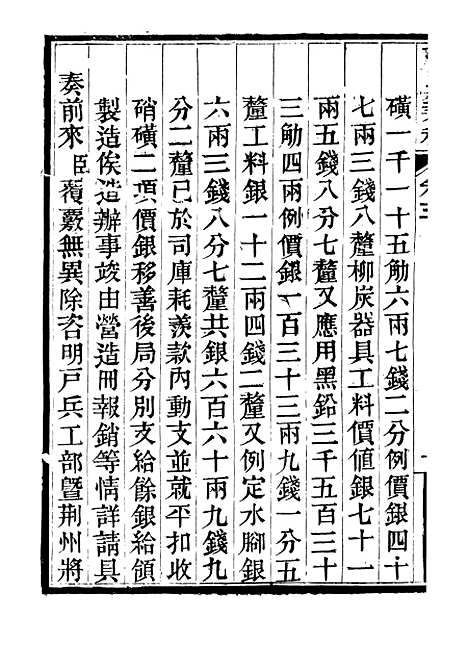 磺一千一十五觔六兩七錢二分例價銀四十
七兩三錢八釐柳炭器具工料價値銀七十一
兩五錢八分七釐又應用黑鉛三千五百三十
三觔四兩例價銀一百三十三兩九錢一分五
釐工料銀一十二兩四錢二釐又例定水腳銀
六兩三錢八分七釐共銀六百六十兩九錢九
分二釐已於司庫耗羨款內動支並就平扣收
硝磺二項價銀移善後局分別支給餘銀給領
製造俟造辦事竣由營造冊報銷等情詳請具
奏前來臣覆覈無異除咨明戸兵工部曁荆州將